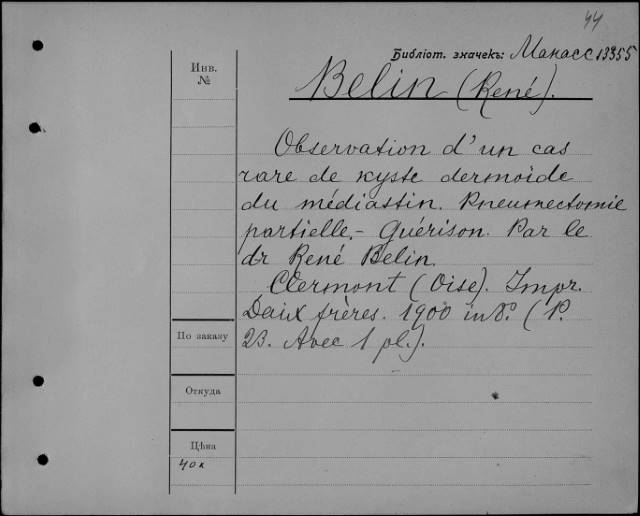 44
Библіот. значекъ: Манасс 13355
Инв.
№
Belin (René).
Observation d'un cas
rare de kyste dermoïde
du médiastin. Pneumectomie
partielle.- Guérison. Par le
dr René Belin.
Clermont (Oise). Impr.
Daix frères. 1900 in 8°. (P.
23. Avec 1 pl.).
По заказу
Откуда
Цѣна
40 к